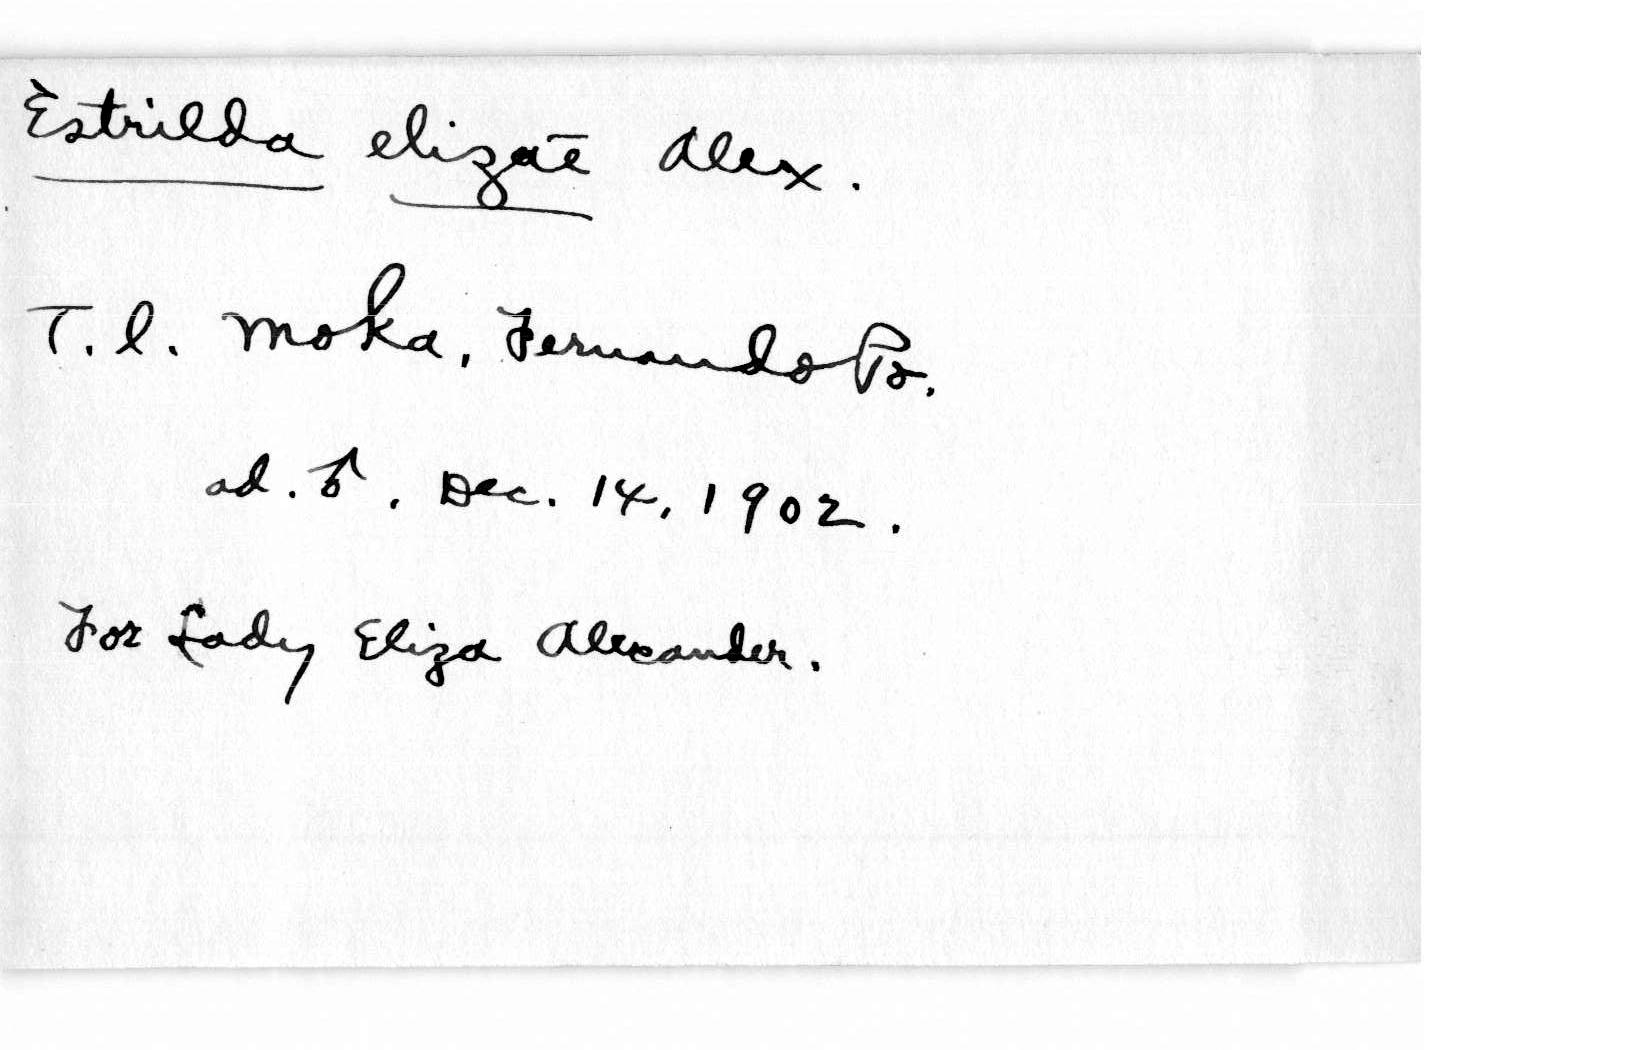 Èstrilda elizae Alex.
T.l. Moka, Fernando Po.
ad. ♂. Dec. 14, 1902.
For Lady Eliza Alexander.